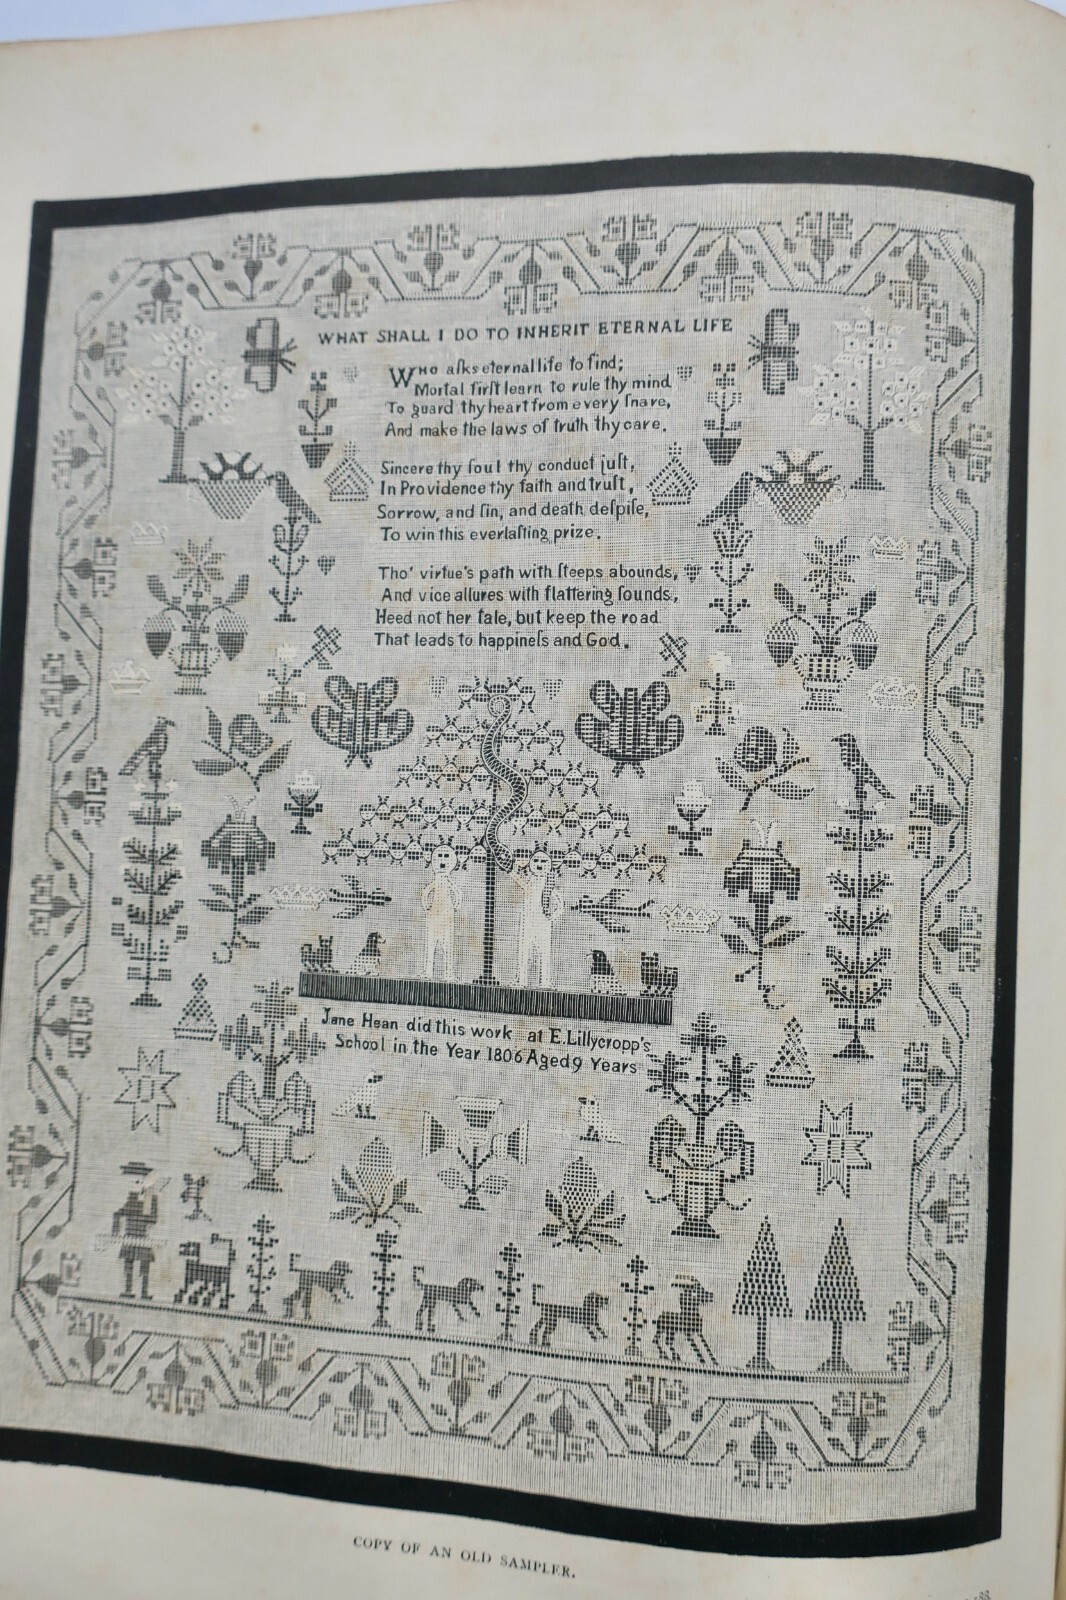 WHAT SHALL I DO TO INHERIT ETERNAL LIFE
WHO aſks eternal life to find;
Mortal firſt learn to rule thy mind
To guard thy heart from every ſnare,
And make the laws of truth thy care.
Sincere thy ſoul thy conduct juſt,
In Providence thy faith and truſt,
Sorrow, and ſin, and death deſpiſe,
To win this everlaſting prize.
Tho' virtue's path with ſteeps abounds,
And vice allures with flattering ſounds,
Heed not her tale, but keep the road
That leads to happineſs and God.
Jane Hean did this work at E. Lillycropp's
School in the Year 1806 Aged 9 Years
COPY OF AN OLD SAMPLER.